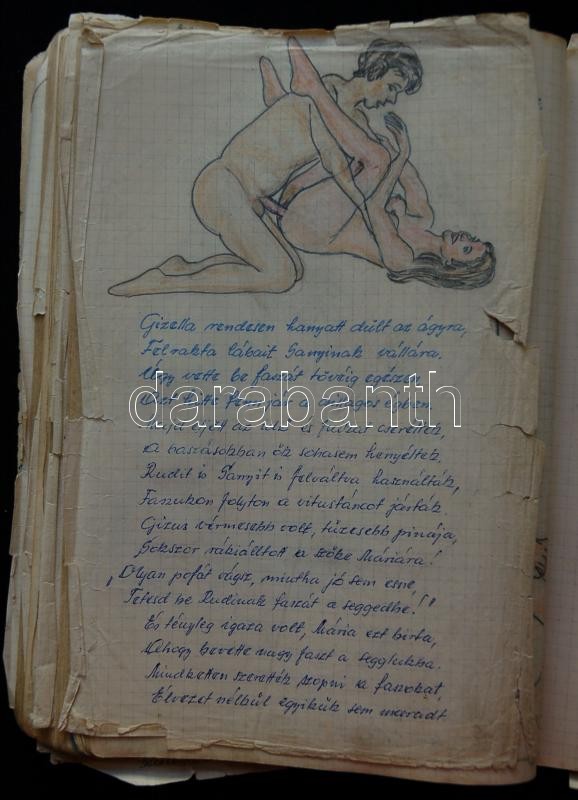 Gizella rendesen hanyatt dült az ágyra,
Felrakta lábait Sanyinak vállára.
Úgy vette be faszát tövéig egészen,
darabanth
és fuvast cserélték,
A baszásokban ők sohasem henyéltek.
Rudit is Sanyit is felváltva használták,
Faszukon folyton a vitustáncot járták.
Gizus vérmesebb volt, tüzesebb pinája,
Sokszor rákiálltott a szőke Máriára!
"Olyan pofát vágsz, mintha jól sem esne,
Tetesd be Rudinak faszát a seggedbe!"
És tényleg igaza volt, Mária ezt birta,
Ahogy bevette nagy faszt a segglukba.
Mindketten szerették szopni a faszokat,
Élvezet nélkül egyikük sem maradt